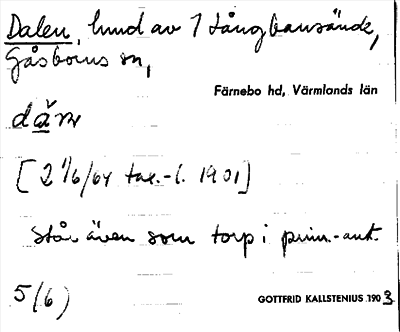 Dalen, hmd av 7 Långbansände,
Gåsborns sn,
Färnebo hd, Värmlands län
[2 1/6/64 tax.-l. 1901]
Står även som torp i prim.-ant.
5(6)
GOTTFRID KALLSTENIUS 1903